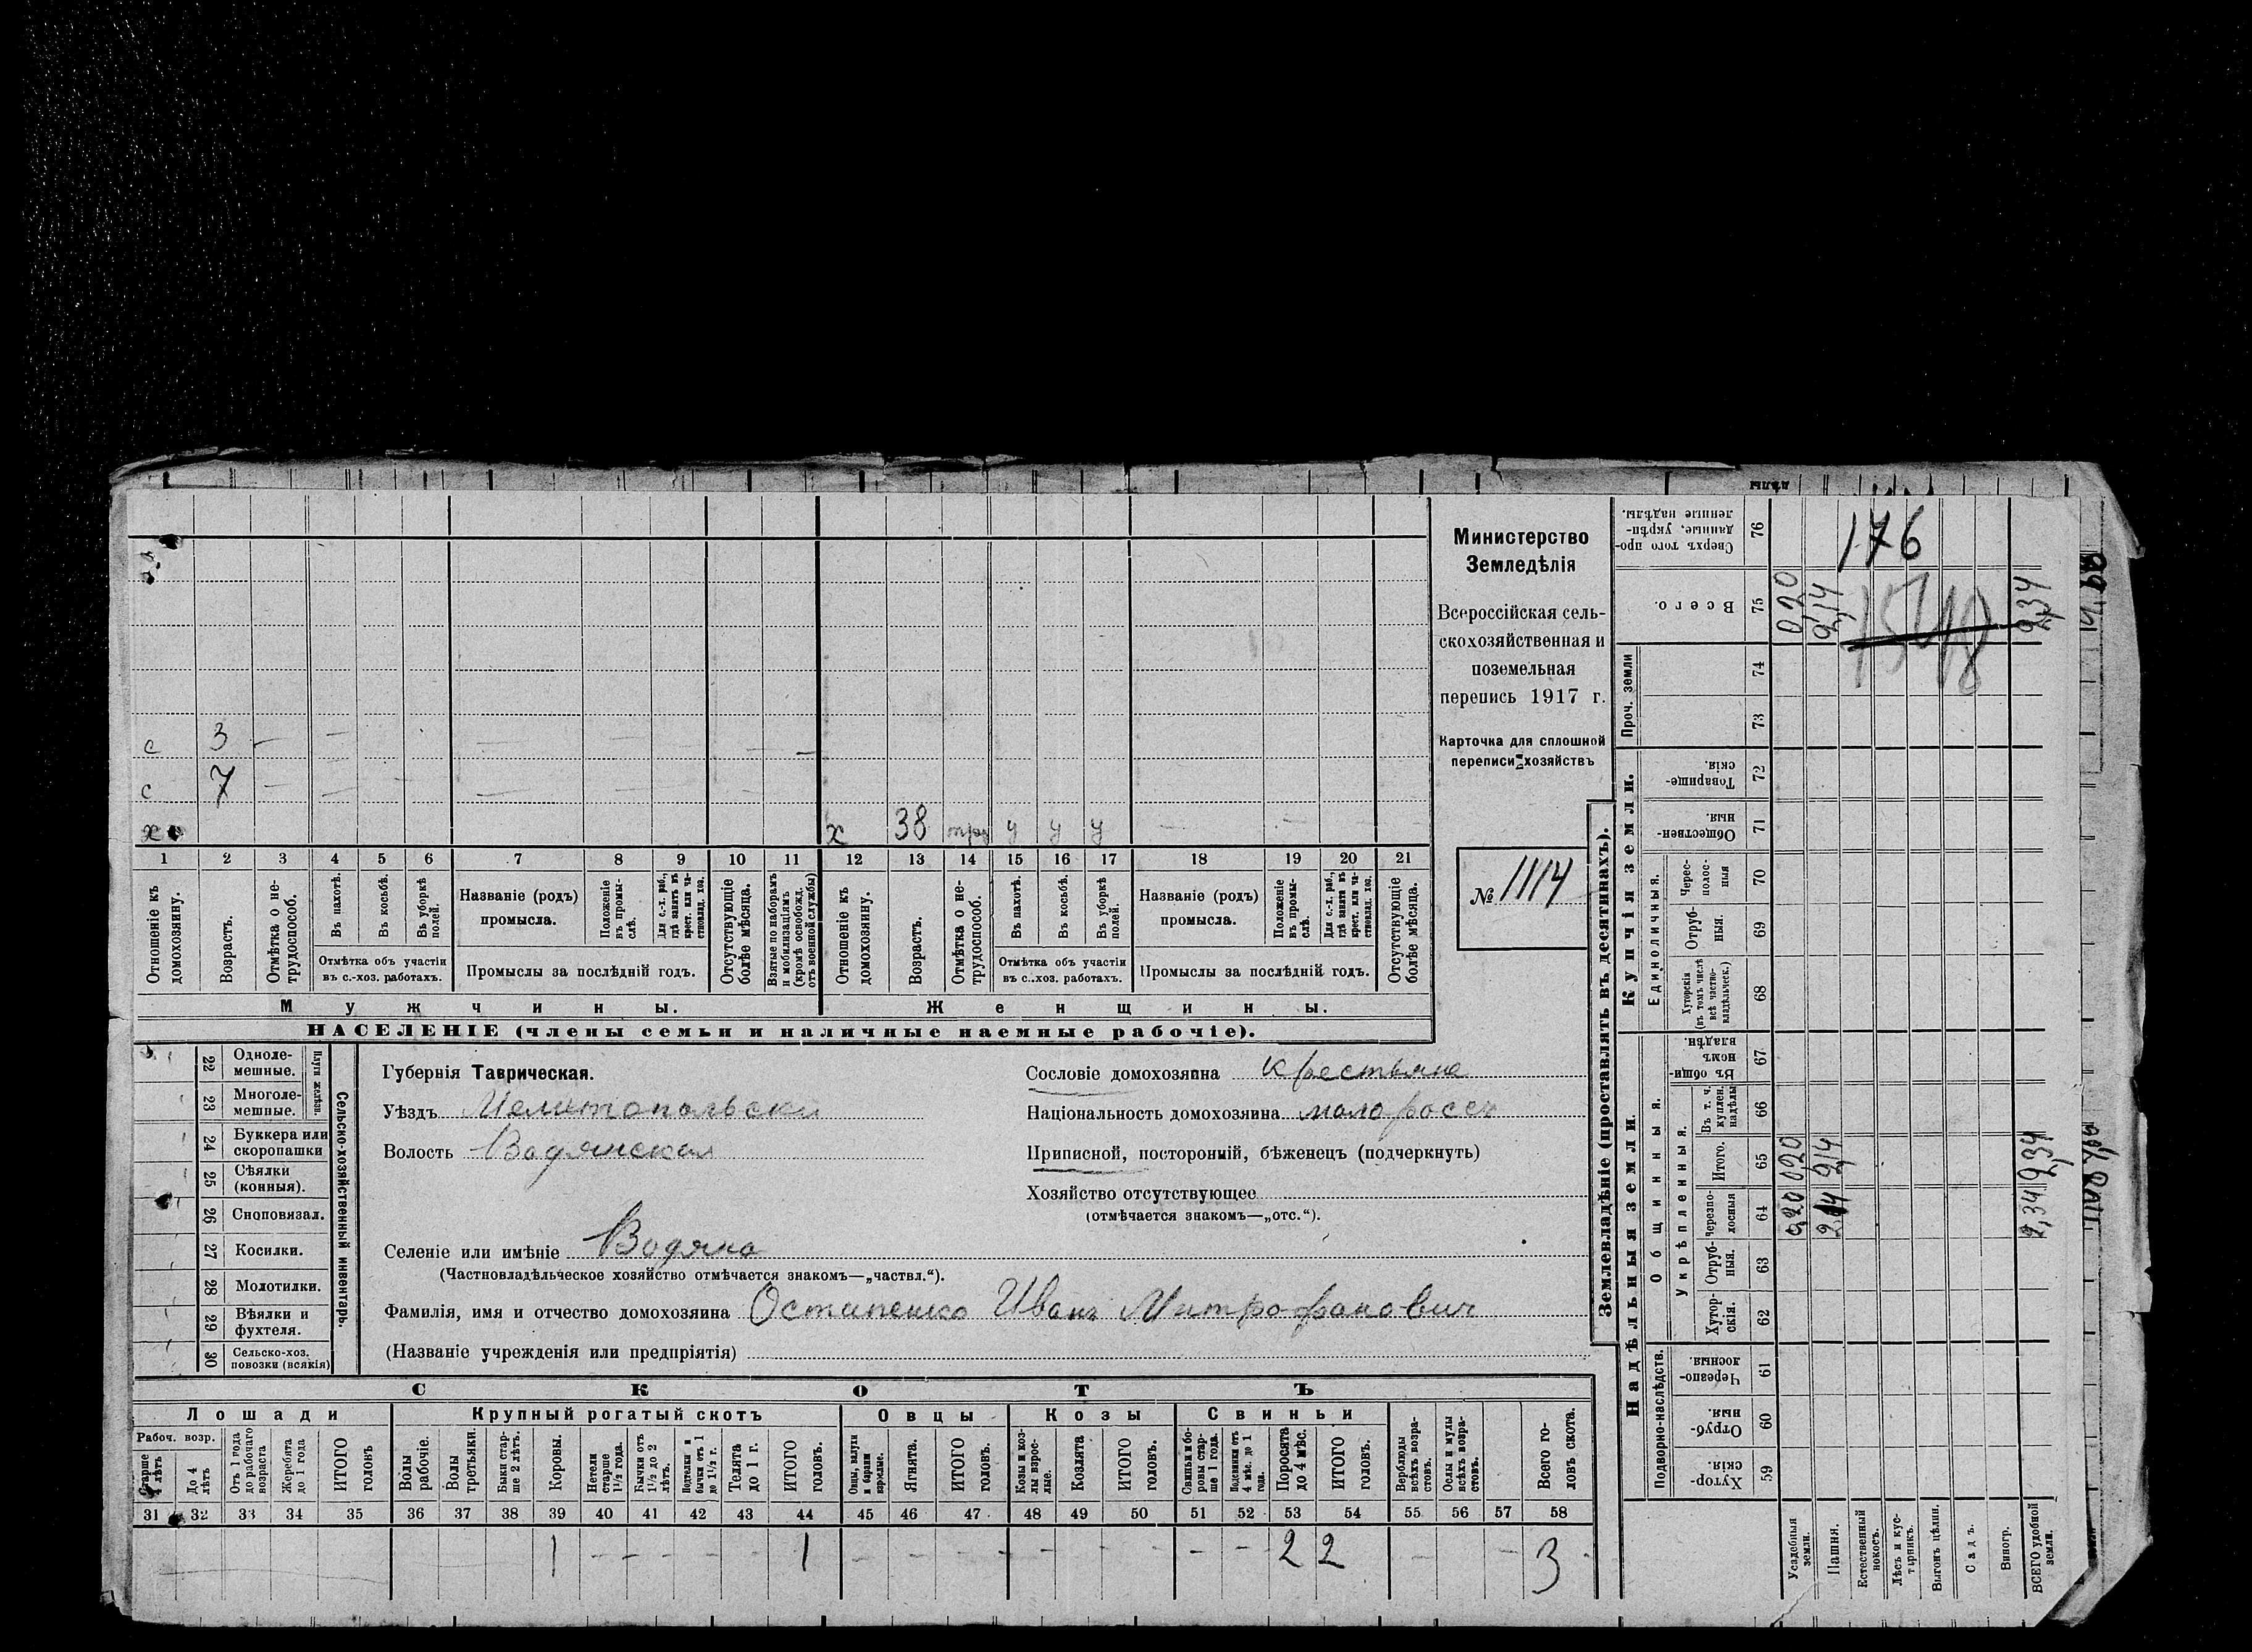 с 3 — — — — — — —
с 7 — — — — — —
х х 38 у у у — — —
1 2 3 4 5 6 7 8 9 10 11 12 13 14 15 16 17 18 19 20 21
Отношеніе къ домохозяину.
Возрастъ.
Отмѣтка о не-трудоспособ.
Въ пахотѣ.
Въ косьбѣ.
Въ уборкѣ полей.
Отмѣтка объ участіи
въ с.-хоз. работахъ.
Названіе (родъ)
промысла.
Положеніе въ промы-слѣ.
Для с.-х. раб., гдѣ занятъ въ крест. или ча-стновлад. хоз.
Промыслы за послѣдній годъ.
Отсутствующіе болѣе мѣсяца.
Взятые по наборамъ и мобилизаціямъ (кромѣ освобожд. отъ военной службы)
Отношеніе къ домохозяину.
Возрастъ.
Отмѣтка о не-трудоспособ.
Въ пахотѣ.
Въ косьбѣ.
Въ уборкѣ полей.
Отмѣтка объ участіи
въ с..хоз. работахъ.
Названіе (родъ)
промысла.
Положеніе въ промы-слѣ.
Для с.-х. раб., гдѣ занятъ въ крест. или ча-стновлад. хоз.
Промыслы за послѣдній годъ.
Отсутствующіе болѣе мѣсяца.
Мужчины. Женщины.
НАСЕЛЕНІЕ (члены семьи и наличные наемные рабочіе).
Министерство
Земледѣлія
Всероссійская сель-
скохозяйственная и
поземельная
перепись 1917 г.
Карточка для сплошной
переписи хозяйствъ
№ 1114
22 Одноле-мешные.
23 Многоле-мешные.
Плуги желѣзн.
24 Буккера или скоропашки
25 Сѣялки (конныя).
26 Сноповязал.
27 Косилки.
28 Молотилки.
29 Вѣялки и фухтеля.
30 Сельско-хоз. повозки (всякія)
Сельско-хозяйственный инвентарь.
Губернія Таврическая.
Уѣздъ Мелитопольски
Волость Водянская
Сословіе домохозяина крестьяне
Національность домохозяина малоросс
Приписной, посторонній, бѣженецъ (подчеркнуть)
Хозяйство отсутствующее
(отмѣчается знакомъ—„отс.“).
Селеніе или имѣніе Водяно
(Частновладѣльческое хозяйство отмѣчается знакомъ—„частвл.“).
Фамилія, имя и отчество домохозяина Остапенко Иванъ Митрофанович
(Названіе учрежденія или предпріятія)
СКОТЪ
Лошади Крупный рогатый скотъ Овцы Козы Свиньи
Рабоч. возр.
Старше 4 лѣтъ
До 4 лѣтъ
Отъ 1 года до рабочаго возраста
Жеребята до 1 года
ИТОГО головъ
Волы рабочіе.
Волы третьяки.
Быки стар-ше 2 лѣтъ.
Коровы.
Нетели старше 1 1/2 года.
Бычки отъ 1 1/2 до 2 лѣтъ.
Подтелки и бычки отъ 1 до 1 1/2 г.
Телята до 1 г.
ИТОГО головъ.
Овцы, валухи и бараны взрослые.
Ягнята.
ИТОГО головъ.
Козы и коз-лы взрос-лые.
Козлята
ИТОГО головъ.
Свиньи и бо-ровы стар-ше 1 года.
Подсвинки отъ 4 мѣс. до 1 года.
Поросята до 4 мѣс.
ИТОГО головъ.
Верблюды всѣхъ возра-стовъ.
Ослы и мулы всѣхъ возра-стовъ.
Всего го-ловъ скота.
31 32 33 34 35 36 37 38 39 40 41 42 43 44 45 46 47 48 49 50 51 52 53 54 55 56 57 58
1 — — — — 1 — — — — — — — — 2 2 — — 3
Землевладѣніе (проставлять въ десятинахъ).
Надѣльныя земли. Купчія земли. Проч. земли
Подворно-наслѣдств.
Общинныя.
Укрѣпленныя.
Единоличныя.
Хутор-скія. 59
Отруб-ныя. 60
Черезпо-лосныя 61
Хутор-скія. 62
Отруб-ныя. 63
Черезпо-лосныя 64
Итого. 65
Въ т. ч. куплен. надѣлы 66
Въ общин-номъ владѣн. 67
Хуторскія (въ томъ числѣ всѣ частно-владѣльческ.) 68
Отруб-ныя. 69
Черес-полос-ныя 70
Обществен-ныя. 71
Товарище-скія. 72
73
74
Всего. 75
Сверхъ того про-данные, укрѣп-ленные надѣлы. 76
Усадебныя земли. 0,20 0,20 0,20
Пашня. 2,14 2,14 2,14
Естественный покосъ.
Лѣсъ и кус-тарникъ.
Выгонъ цѣлин.
Садъ.
Виногр.
ВСЕГО удобной земли. 2,34 2,34 2,34
176